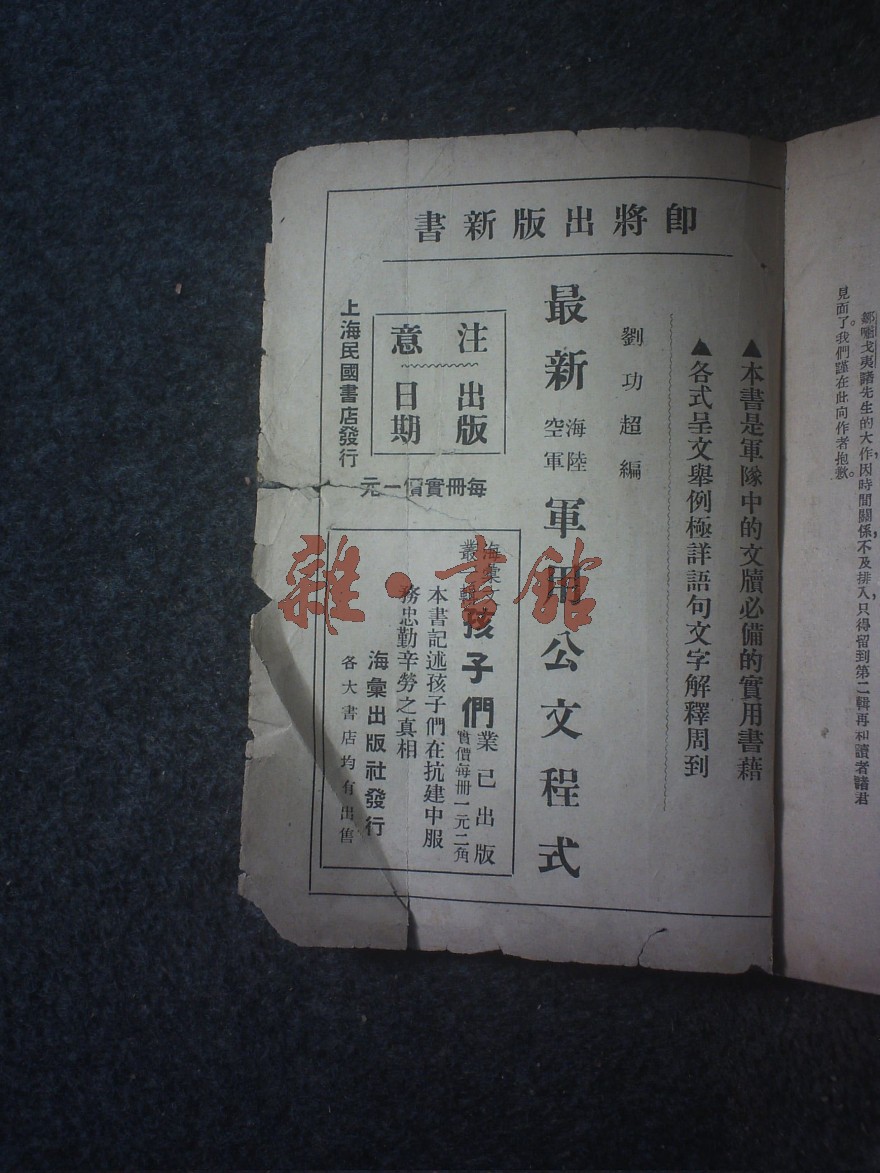 鄒嘯戈夷諸先生的大作,因時間關係,不及排入,只得留到第二輯再和讀者諸君
見面了。我們謹在此向作者抱歉。
即將出版新書
▲本書是軍隊中的文牘必備的實用書藉
▲各式呈文舉例極詳語句文字解釋周到
劉功超編
最新海陸空軍軍用公文程式
注意
出版日期
每冊實價一元
上海民國書店發行
海彙叢輯
孩子們
業已出版
實價每冊一元二角
本書記述孩子們在抗建中服
務忠勤辛勞之真相
海彙出版社發行
各大書店均有出售
雜·書館